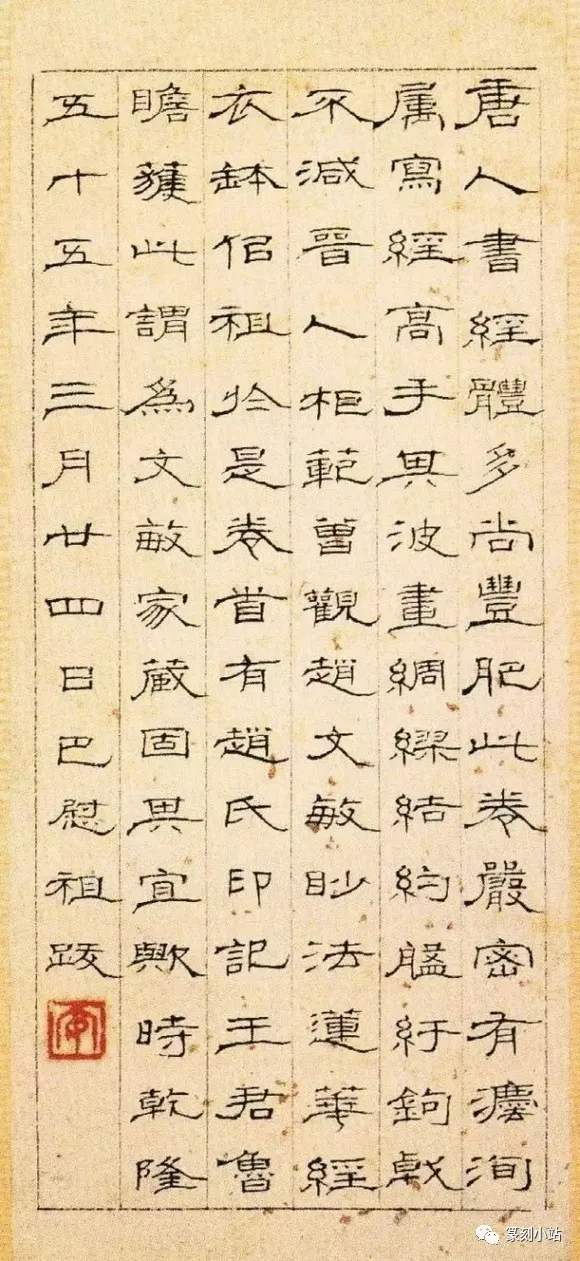 唐人書經體多尚豐肥此卷嚴密有灋洵
属寫經高手其波畫綢繆結約紆鉤戟
不減晉人柜範曾觀趙文敏眇法蓮華經
衣鉢佀祖於是卷首有趙氏印記王君魯
瞻獲此謂為文敏家藏固其宜歟時乾隆
五十五年三月廿四日巴慰祖跋
篆刻小站